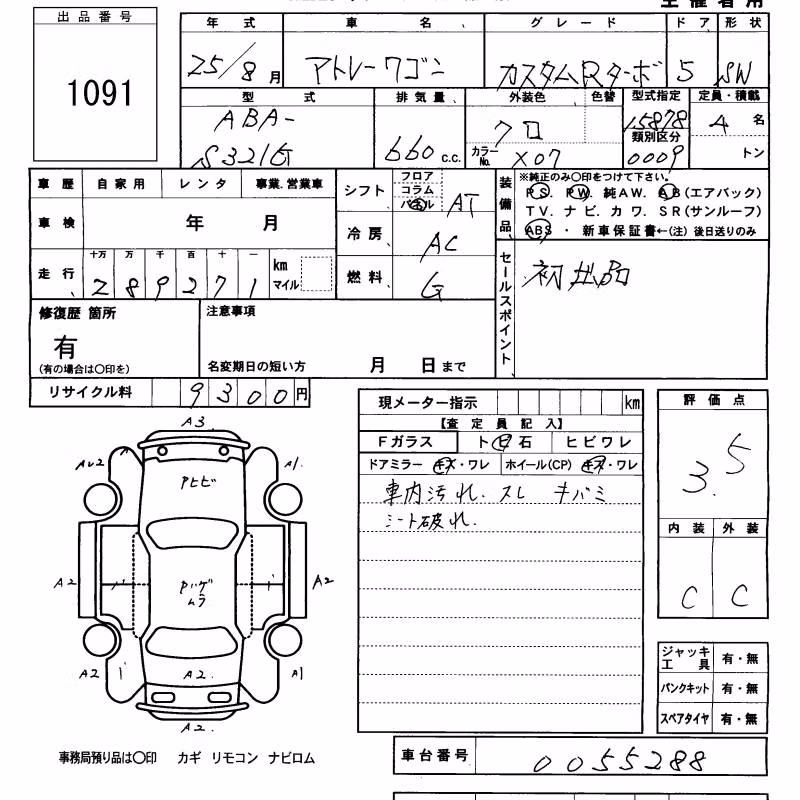 出品番号
1091
年 式 車 名 グレード ドア 形状
25/8月 アトレーワゴン カスタムRターボ 5 SW
型 式 排気量 外装色 色替 型式指定 定員・積載
ABA- クロ 15878 4 名
類別区分
S321G 660 c.c. カラーNo. X07 0009 トン
車歴 自家用 レンタ 事業.営業車
車検 年 月
走行 十万 万 千 百 十 一
2 8 9 2 7 1 km マイル
シフト フロア コラム パネル AT
冷房 AC
燃料 G
装備品
※純正のみ〇印をつけて下さい。
PS. PW. 純AW. AB(エアバック)
TV. ナビ. カワ. SR(サンルーフ)
ABS ・ 新車保証書←(注) 後日送りのみ
セールスポイント
初出品
修復歴 箇所
有
(有の場合は〇印を)
注意事項
名変期日の短い方 月 日まで
リサイクル料 9300円
現メーター指示 km
【査定員記入】
Fガラス トビ石 ヒビワレ
ドアミラー キズ・ワレ ホイール(CP) キズ・ワレ
車内汚れ. スレ キバミ
シート破れ.
評価点
3.5
内装 外装
C C
ジャッキ工具 有・無
パンクキット 有・無
スペアタイヤ 有・無
A3
A1
Pトビ
A2
A2
Pハゲ
ムラ
A2
A2
A1
A2
事務局預り品は〇印 カギ リモコン ナビロム
車台番号 0055288